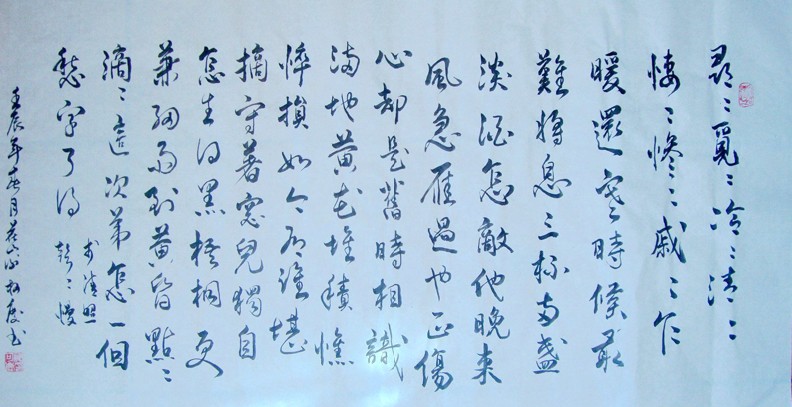 尋〻覓〻冷〻清〻
悽〻慘〻戚〻乍
暖還寒時候最
難將息三杯兩盞
淡酒怎敵他晚来
風急雁過也正傷
心却是舊時相識
滿地黄花堆積憔
悴損如今有誰堪
摘守著窓兒獨自
怎生得黑梧桐更
兼細雨到黄昏點〻
滴〻這次第怎一個
愁字了得
李清照
聲〻慢
壬辰年春月書